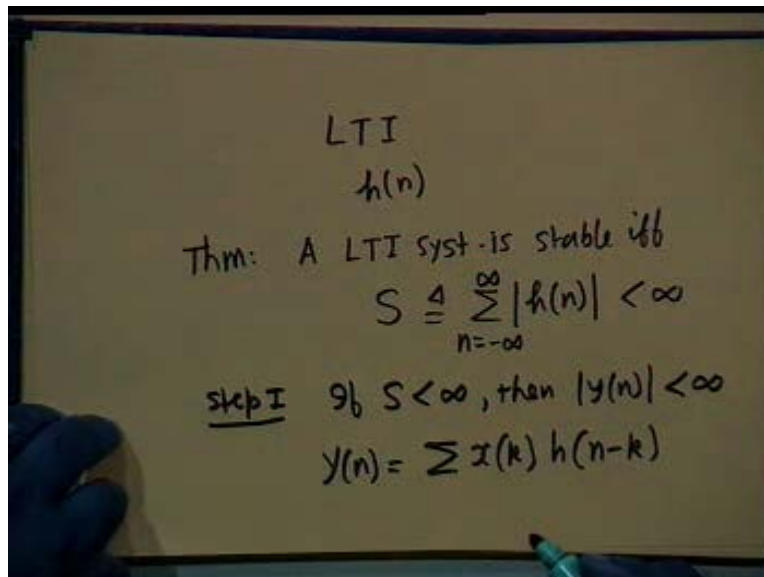 LTI
h(n)
Thm: A LTI syst. is stable iff
S ≜ ∑_{n=-∞}^{∞} |h(n)| < ∞
Step I If S < ∞, then |y(n)| < ∞
y(n) = ∑ x(k) h(n-k)